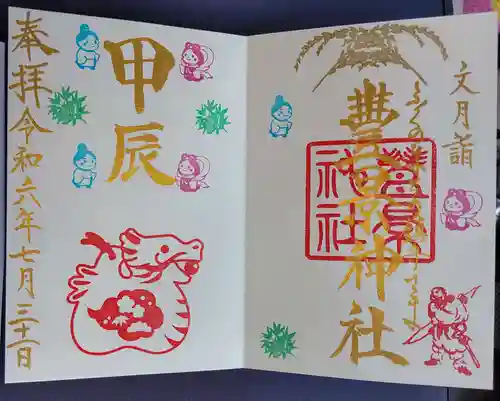 文月詣
豊景神社
豊景神社
甲辰
奉拝 令和六年七月三十一日